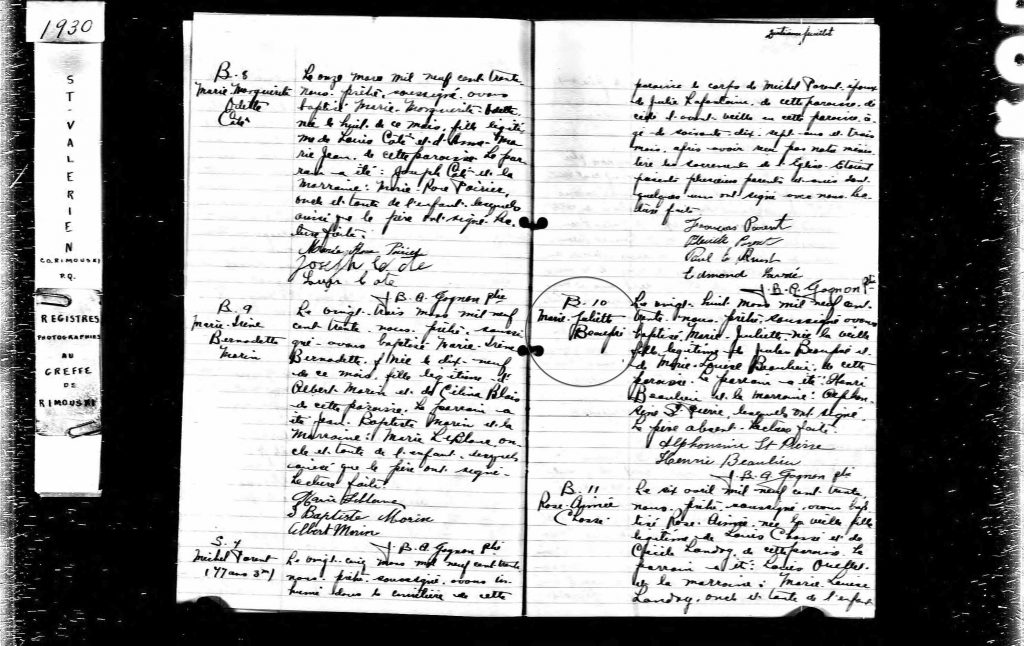 1930
ST-VALERIEN
CO. RIMOUSKI
P.Q.
REGISTRES
PHOTOGRAPHIES
AU
GREFFE
DE
RIMOUSKI
B. 8
Marie-Marguerite
Odette
Coté
Le onze mars mil neuf cent trente
nous, prêtre, soussigné, avons
baptisé Marie-Marguerite-Odette,
née le huit de ce mois, fille légiti-
me de Louis Coté et d'Anna-Ma-
rie Jean, de cette paroisse. Le par-
rain a été: Joseph Coté et la
marraine: Marie Rose Poirier,
oncle et tante de l'enfant, lesquels
ainsi que le père ont signé. Lec-
ture faite.
Marie Rose Poirier
Joseph Cote
Cote
J. B. A. Gagnon ptre
B. 9
Marie-Irène
Bernadette
Morin
Le vingt-trois mars mil neuf
cent trente, nous, prêtre, soussi-
gné avons baptisé Marie-Irène
Bernadette, née le dix-neuf
de ce mois, fille légitime de
Albert Morin et de Célina Blais
de cette paroisse. Le parrain a
été Jean-Baptiste Morin et la
marraine: Marie Leblanc, on-
cle et tante de l'enfant, lesquels
que le père ont signé.
Lecture faite.
Marie Leblanc
J Baptiste Morin
Albert Morin
J. B. A. Gagnon ptre
S. 4
Michel Parent
(77 ans 3m)
Le vingt-cinq mars mil neuf cent trente
nous, prêtre, soussigné, avons in-
humé dans le cimetière de cette
feuillet
paroisse le corps de Michel Parent, époux
de Julie Lafontaine, de cette paroisse, dé-
cédé l'avant-veille en cette paroisse, â-
gé de soixante-dix-sept ans et trois
mois, après avoir reçu par notre minis-
tère les sacrements de l'Eglise. Etaient
présents plusieurs parents et amis dont
quelques uns ont signé avec nous. Lec-
ture faite.
François Parent
Paul
Edmond
J. B. A. Gagnon ptre
B. 10
Marie-Juliette
Beaupré
Le vingt-huit mars mil neuf cent
trente, nous, prêtre, soussigné avons
baptisé Marie Juliette née la veille
fille légitime de Jules Beaupré et
de Marie-Louise Beaulieu, de cette
paroisse. Le parrain a été: Henri
Beaulieu et la marraine: Alphon-
sine St. Pierre, lesquels ont signé
le père absent. Lecture faite.
Alphonsine St Pierre
Henrie Beaulieu
J. B. A. Gagnon ptre
B. 11
Rose-Aimée
Chassé
Le six avril mil neuf cent trente,
nous, prêtre, soussigné, avons bap-
tisé Rose-Aimée, née la veille fille
légitime de Louis Chassé et de
Cécile Landry, de cette paroisse. Le
parrain a été: Louis Ouellet
et la marraine: Marie-Louise
Landry, oncle et tante de l'enfant